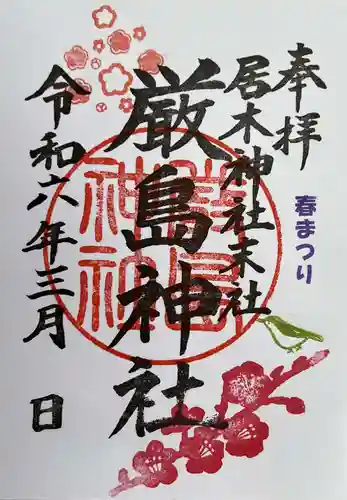 奉拝
春まつり
居木神社末社
厳島神社
令和六年三月 日